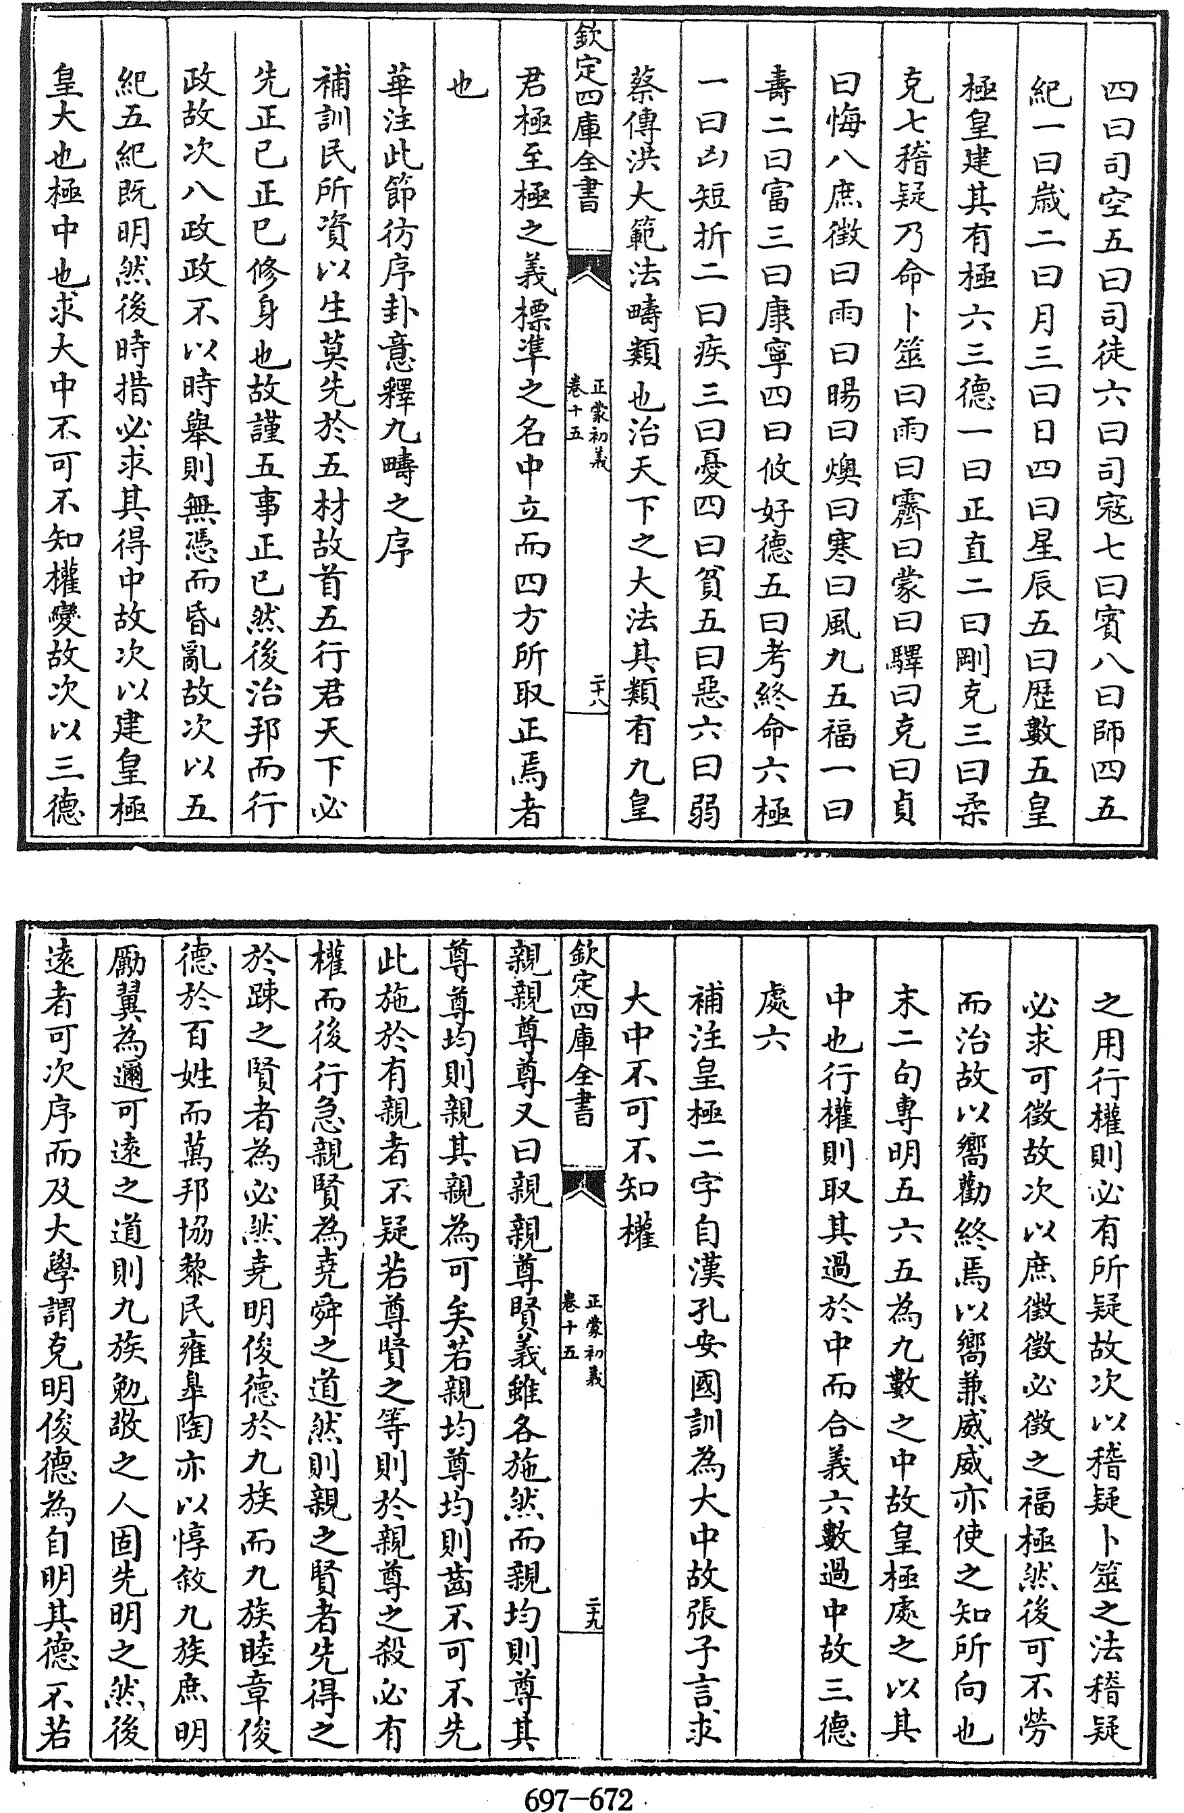 四曰司空五曰司徒六曰司寇七曰賓八曰師四五
紀一曰歲二曰月三曰日四曰星辰五曰歷數五皇
極皇建其有極六三德一曰正直二曰剛克三曰柔
克七稽疑乃命卜筮曰雨曰霽曰蒙曰驛曰克曰貞
曰悔八庶徵曰雨曰暘曰燠曰寒曰風九五福一曰
壽二曰富三曰康寧四曰攸好德五曰考終命六極
一曰凶短折二曰疾三曰憂四曰貧五曰惡六曰弱
蔡傳洪大範法疇類也治天下之大法其類有九皇
欽定四庫全書
正蒙初義
卷十五
二十八
君極至極之義標準之名中立而四方所取正焉者
也
華注此節彷序卦意釋九疇之序
補訓民所資以生莫先於五材故首五行君天下必
先正已正已修身也故謹五事正已然後治邦而行
政故次八政政不以時舉則無憑而昏亂故次以五
紀五紀既明然後時措必求其得中故次以建皇極
皇大也極中也求大中不可不知權變故次以三德
之用行權則必有所疑故次以稽疑卜筮之法稽疑
必求可徵故次以庶徵徵必徵之福極然後可不勞
而治故以嚮勸終焉以嚮兼威威亦使之知所向也
末二句專明五六五為九數之中故皇極處之以其
中也行權則取其過於中而合義六數過中故三德
處六
補注皇極二字自漢孔安國訓為大中故張子言求
大中不可不知權
欽定四庫全書
正蒙初義
卷十五
二十九
親親尊尊又曰親親尊賢義雖各施然而親均則尊其
尊尊均則親其親為可矣若親均尊均則齒不可不先
此施於有親者不疑若尊賢之等則於親尊之殺必有
權而後行急親賢為堯舜之道然則親之賢者先得之
於踈之賢者為必然堯明俊德於九族而九族睦章俊
德於百姓而萬邦協黎民雍臯陶亦以惇敘九族庶明
勵翼為邇可遠之道則九族勉敬之人固先明之然後
遠者可次序而及大學謂克明俊德為自明其德不若
697—672